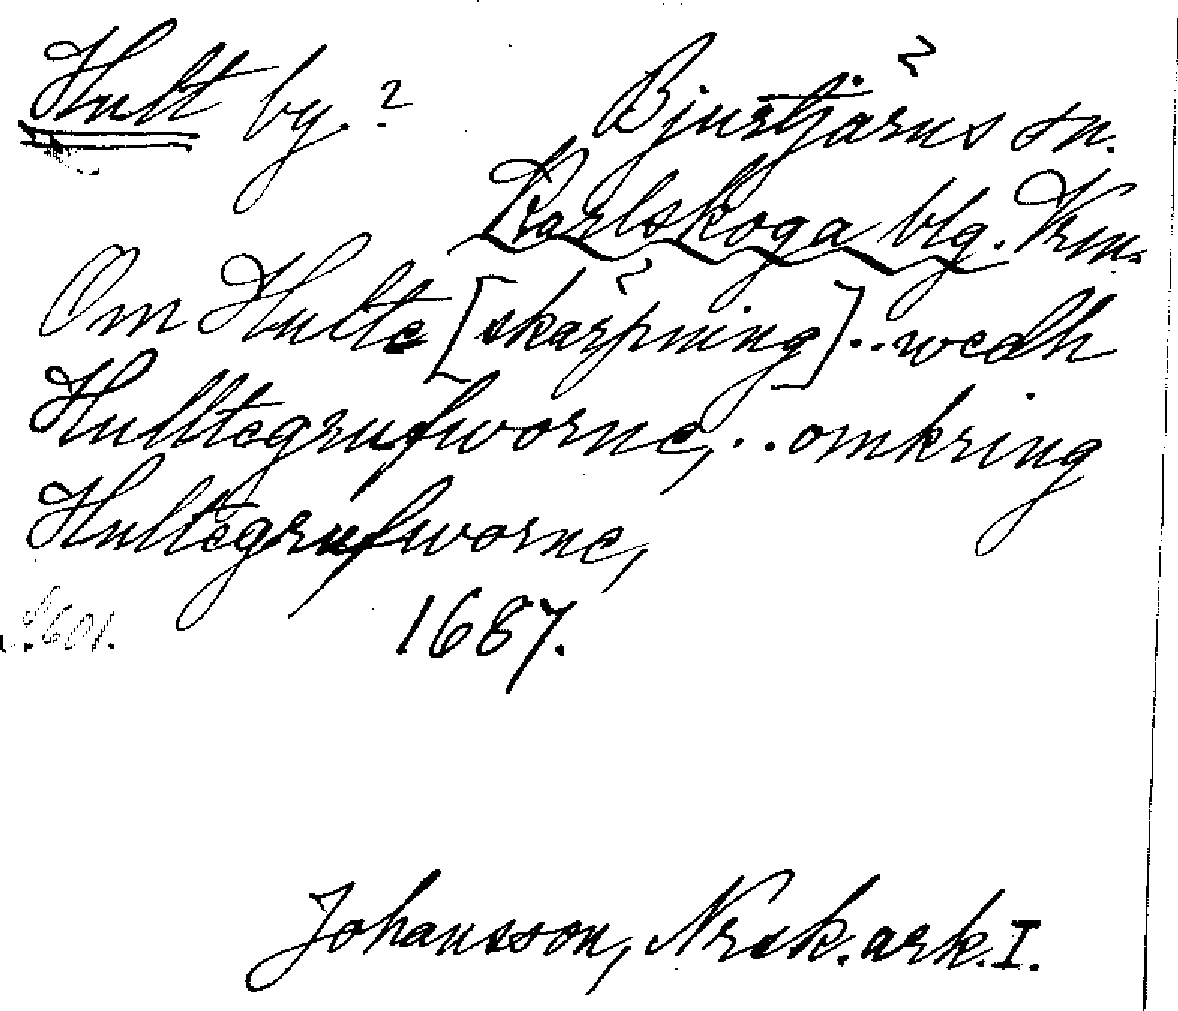 Hult by.? Bjurtjärns sn.
Karlskoga blg. Vrm.
Om Hulte [skärpning] .. wedh
Hulltegrufworne, .. omkring
Hultegrufworne,
S. 601. 1687.
Johansson, Norsk. ark. I.